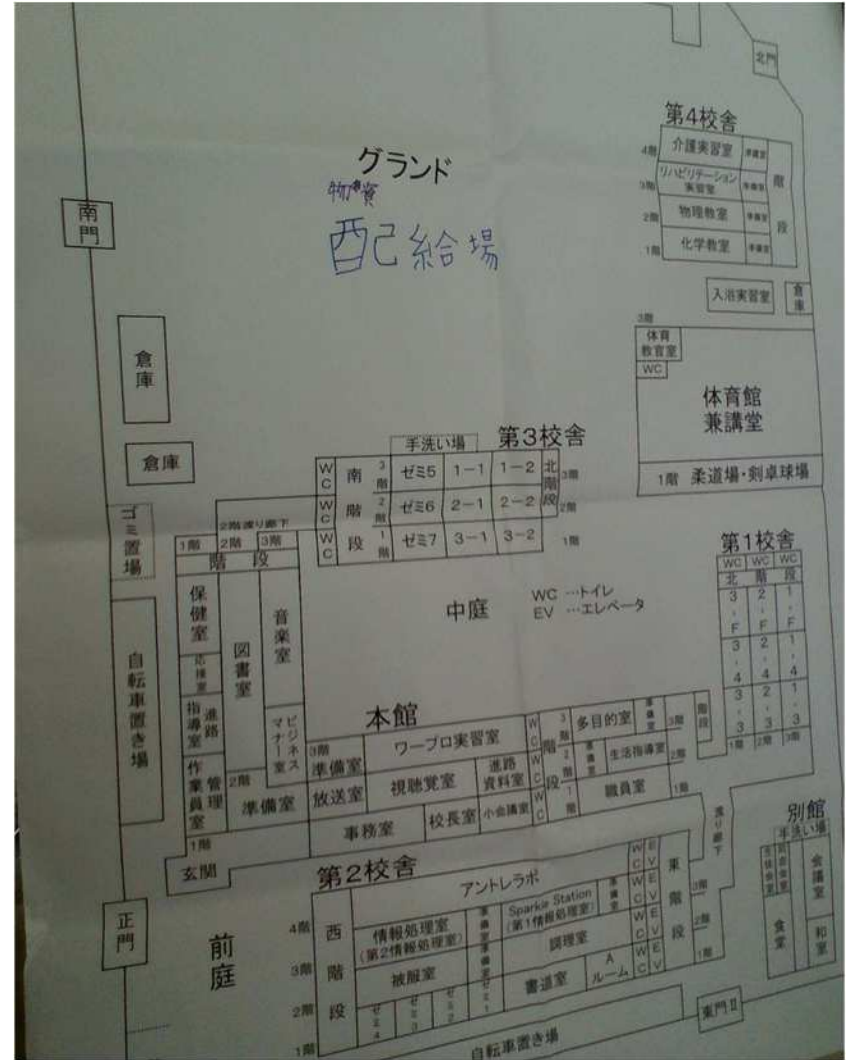 北門
第4校舎
4階 介護実習室 準備室
3階 リハビリテーション実習室 準備室
2階 物理教室 準備室
1階 化学教室 準備室
階段
グランド
物資
配給場
南門
入浴実習室
倉庫
倉庫
倉庫
3階
体育教官室
WC
体育館兼講堂
1階 柔道場・剣卓球場
手洗い場 第3校舎
WC 南階段 3階 ゼミ5 1-1 1-2 北階段 3階
WC 2階 ゼミ6 2-1 2-2 2階
WC 1階 ゼミ7 3-1 3-2 1階
ゴミ置場
2階渡り廊下
1階 2階 3階
階段
保健室
応接室
進路指導室
管理作業員室
1階
図書室
2階
準備室
音楽室
ビジネスマナー室
中庭
WC …トイレ
EV …エレベータ
第1校舎
WC WC WC
北階段
3・F 2・F 1・F
3・4 2・4 1・4
3・3 2・3 1・3
1階 2階 3階
自転車置き場
本館
3階 準備室 ワープロ実習室 WC 階段 3階 多目的室 準備室 3階 階段
放送室 視聴覚室 進路資料室 WC 2階 準備室 生活指導室 2階
事務室 校長室 小会議室 WC 1階 職員室 1階
玄関
渡り廊下
別館
手洗い場
会議室
食堂
和室
正門
前庭
第2校舎
4階 アントレラボ WC EV
3階 情報処理室(第2情報処理室) 準備室 Sparkle Station(第1情報処理室) 準備室 WC EV 3階
2階 被服室 準備室 調理室 WC EV 2階
1階 ゼミ4 ゼミ3 ゼミ2 ゼミ1 書道室 Aルーム WC EV 1階
西階段
東階段
自転車置き場
東門Ⅱ